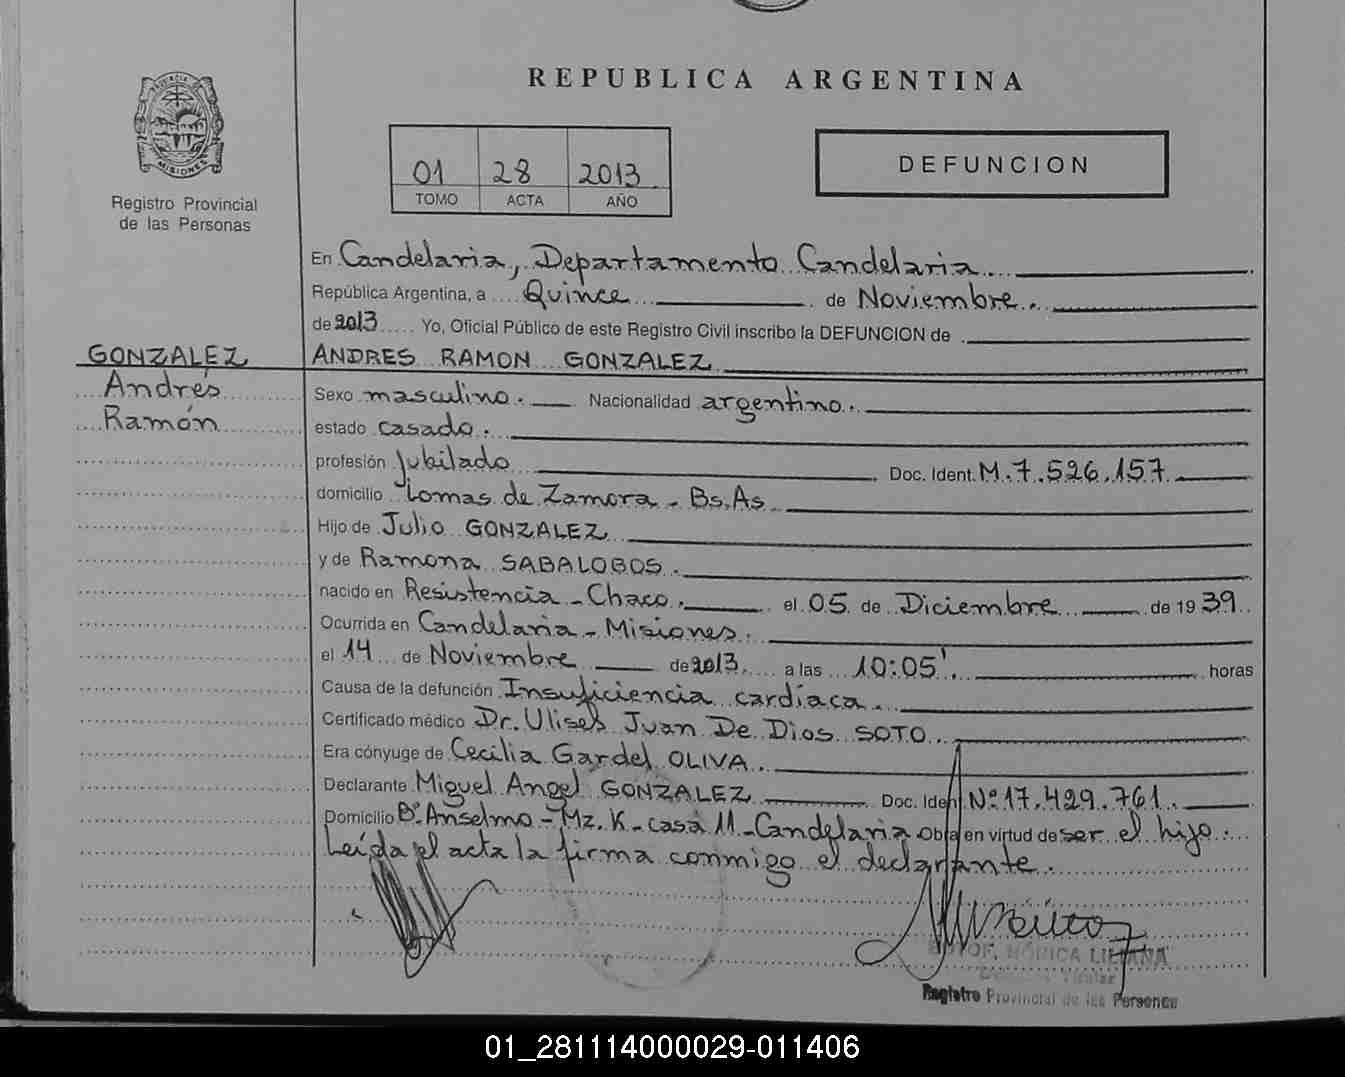 REPUBLICA ARGENTINA
PROVINCIA DE
MISIONES
Registro Provincial
de las Personas
01 28 2013
TOMO ACTA AÑO
DEFUNCION
En Candelaria, Departamento Candelaria
República Argentina, a Quince de Noviembre.
de 2013 Yo, Oficial Público de este Registro Civil inscribo la DEFUNCION de
GONZALEZ ANDRES RAMON GONZALEZ
Andrés Sexo masculino. Nacionalidad argentino.
Ramón estado casado.
profesión Jubilado Doc. Ident. M.7.526.157.
domicilio Lomas de Zamora - Bs.As
Hijo de Julio GONZALEZ
y de Ramona SABALOBOS.
nacido en Resistencia - Chaco. el 05 de Diciembre de 1939.
Ocurrida en Candelaria - Misiones.
el 14 de Noviembre de 2013 a las 10:05'. horas
Causa de la defunción Insuficiencia cardíaca.
Certificado médico Dr. Ulises Juan De Dios SOTO.
Era cónyuge de Cecilia Gardel OLIVA.
Declarante Miguel Angel GONZALEZ Doc. Ident Nº 17.429.761.
Domicilio Bº Anselmo - Mz. K - casa 11 - Candelaria Obra en virtud de ser el hijo.
Leída el acta la firma conmigo el declarante.
MONICA LILIANA
Registro Provincial de las Personas
01_281114000029-011406